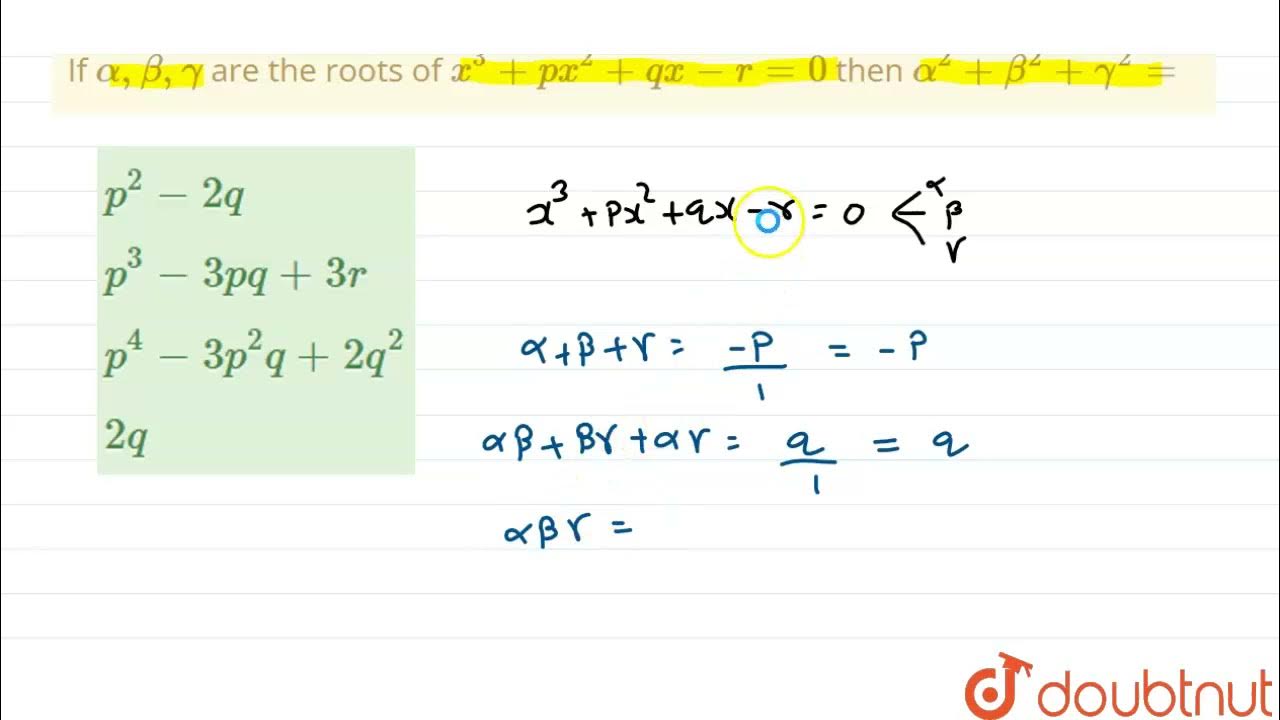 If α, β, γ are the roots of x³ + px² + qx − r = 0 then α² + β² + γ² =
p² − 2q
p³ − 3pq + 3r
p⁴ − 3p²q + 2q²
2q
x³ + px² + qx − r = 0 < α
β
γ
α + β + γ = −p/1 = −p
αβ + βγ + αγ = q/1 = q
αβγ =
doubtnut